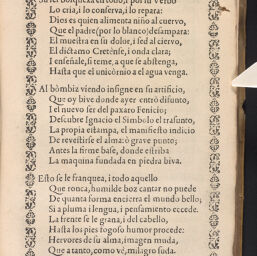 Lo cria, i lo conserva, i lo repara:
Dios es quien alimenta niño al cuervo,
Que el padre (por lo blanco) desampara:
El muestra en su dolor, i sed al ciervo,
El dictamo Cretense, i onda clara:
I enseñale, si teme, a que se abstenga,
Hasta que el unicornio a el agua venga.
Al bõmbiz viendo insigne en su artificio,
Que oy bive donde ayer entrò difunto,
I el nuevo ser del paxaro Fenicio;
Descubre Ignacio el Simbolo el trasunto,
La propia estampa, el manifiesto indicio
De revestirse el alma: ò grave punto;
Antes la firme base, donde estriba
La maquina fundada en piedra biva.
Esto se le franquea, i todo aquello
Que ronca, humilde boz cantar no puede
De quanta forma encierra el mundo bello;
Si a pluma i lengua, i pensamiento ecede.
La frente se le grana, i del cabello,
Hasta los pies fogoso humor procede:
Hervores de su alma, imagen muda,
Que a tanto, como vé, milagro suda.